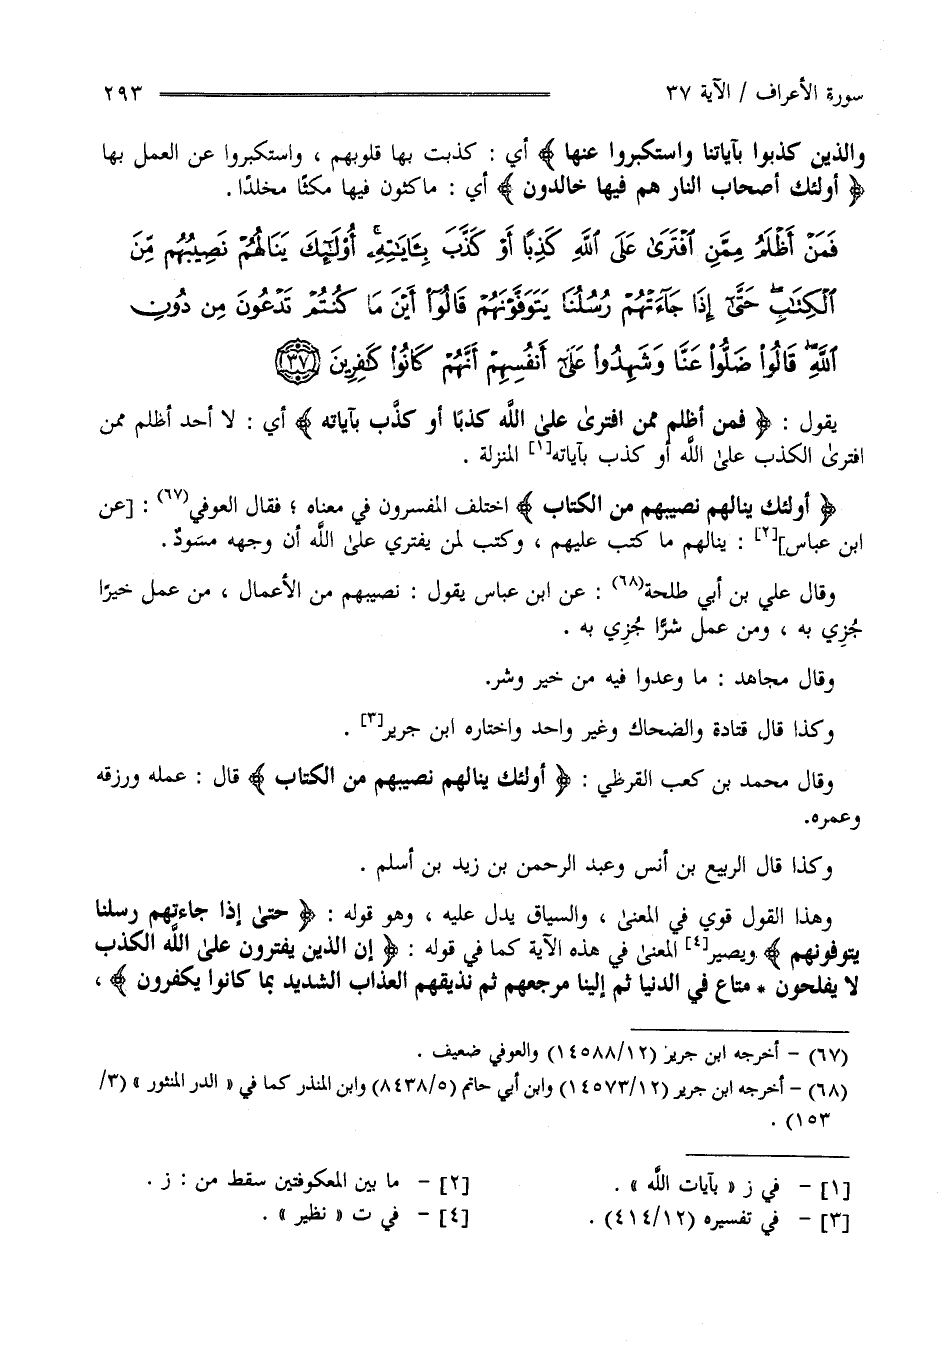 سورة الأعراف / الآية ٣٧ ٢٩٣
والذين كذبوا بآياتنا واستكبروا عنها ﴾ أي : كذبت بها قلوبهم ، واستكبروا عن العمل بها
﴿ أولئك أصحاب النار هم فيها خالدون ﴾ أي : ماكثون فيها مكثًا مخلدًا .
فَمَنْ أَظْلَمُ مِمَّنِ ٱفْتَرَىٰ عَلَى ٱللَّهِ كَذِبًا أَوْ كَذَّبَ بِـَٔايَـٰتِهِۦٓ ۚ أُو۟لَـٰٓئِكَ يَنَالُهُمْ نَصِيبُهُم مِّنَ
ٱلْكِتَـٰبِ ۖ حَتَّىٰٓ إِذَا جَآءَتْهُمْ رُسُلُنَا يَتَوَفَّوْنَهُمْ قَالُوٓا۟ أَيْنَ مَا كُنتُمْ تَدْعُونَ مِن دُونِ
ٱللَّهِ ۖ قَالُوا۟ ضَلُّوا۟ عَنَّا وَشَهِدُوا۟ عَلَىٰٓ أَنفُسِهِمْ أَنَّهُمْ كَانُوا۟ كَـٰفِرِينَ ﴿٣٧﴾
يقول : ﴿ فمن أظلم ممن افترىٰ علىٰ اللَّه كذبًا أو كذَّب بآياته ﴾ أي : لا أحد أظلم ممن
افترىٰ الكذب علىٰ اللَّه أو كذب بآياته[١] المنزلة .
﴿ أولئك ينالهم نصيبهم من الكتاب ﴾ اختلف المفسرون في معناه ؛ فقال العوفي(٦٧) : [عن
ابن عباس][٢] : ينالهم ما كتب عليهم ، وكتب لمن يفتري علىٰ اللَّه أن وجهه مسَودٌ .
وقال علي بن أبي طلحة(٦٨) : عن ابن عباس يقول : نصيبهم من الأعمال ، من عمل خيرًا
جُزِي به ، ومن عمل شرًّا جُزِي به .
وقال مجاهد : ما وعدوا فيه من خير وشر.
وكذا قال قتادة والضحاك وغير واحد واختاره ابن جرير[٣] .
وقال محمد بن كعب القرظي : ﴿ أولئك ينالهم نصيبهم من الكتاب ﴾ قال : عمله ورزقه
وعمره.
وكذا قال الربيع بن أنس وعبد الرحمن بن زيد بن أسلم .
وهذا القول قوي في المعنىٰ ، والسياق يدل عليه ، وهو قوله : ﴿ حتىٰ إذا جاءتهم رسلنا
يتوفونهم ﴾ ويصير[٤] المعنىٰ في هذه الآية كما في قوله : ﴿ إن الذين يفترون علىٰ اللَّه الكذب
لا يفلحون * متاع في الدنيا ثم إلينا مرجعهم ثم نذيقهم العذاب الشديد بما كانوا يكفرون ﴾ ،
(٦٧) - أخرجه ابن جرير (١٤٥٨٨/١٢) والعوفي ضعيف .
(٦٨) - أخرجه ابن جرير (١٤٥٧٣/١٢) وابن أبي حاتم (٨٤٣٨/٥) وابن المنذر كما في « الدر المنثور » (٣/
١٥٣) .
[١] - في ز « بآيات اللَّه » . [٢] - ما بين المعكوفتين سقط من : ز .
[٣] - في تفسيره (٤١٤/١٢) . [٤] - في ت « نظير » .